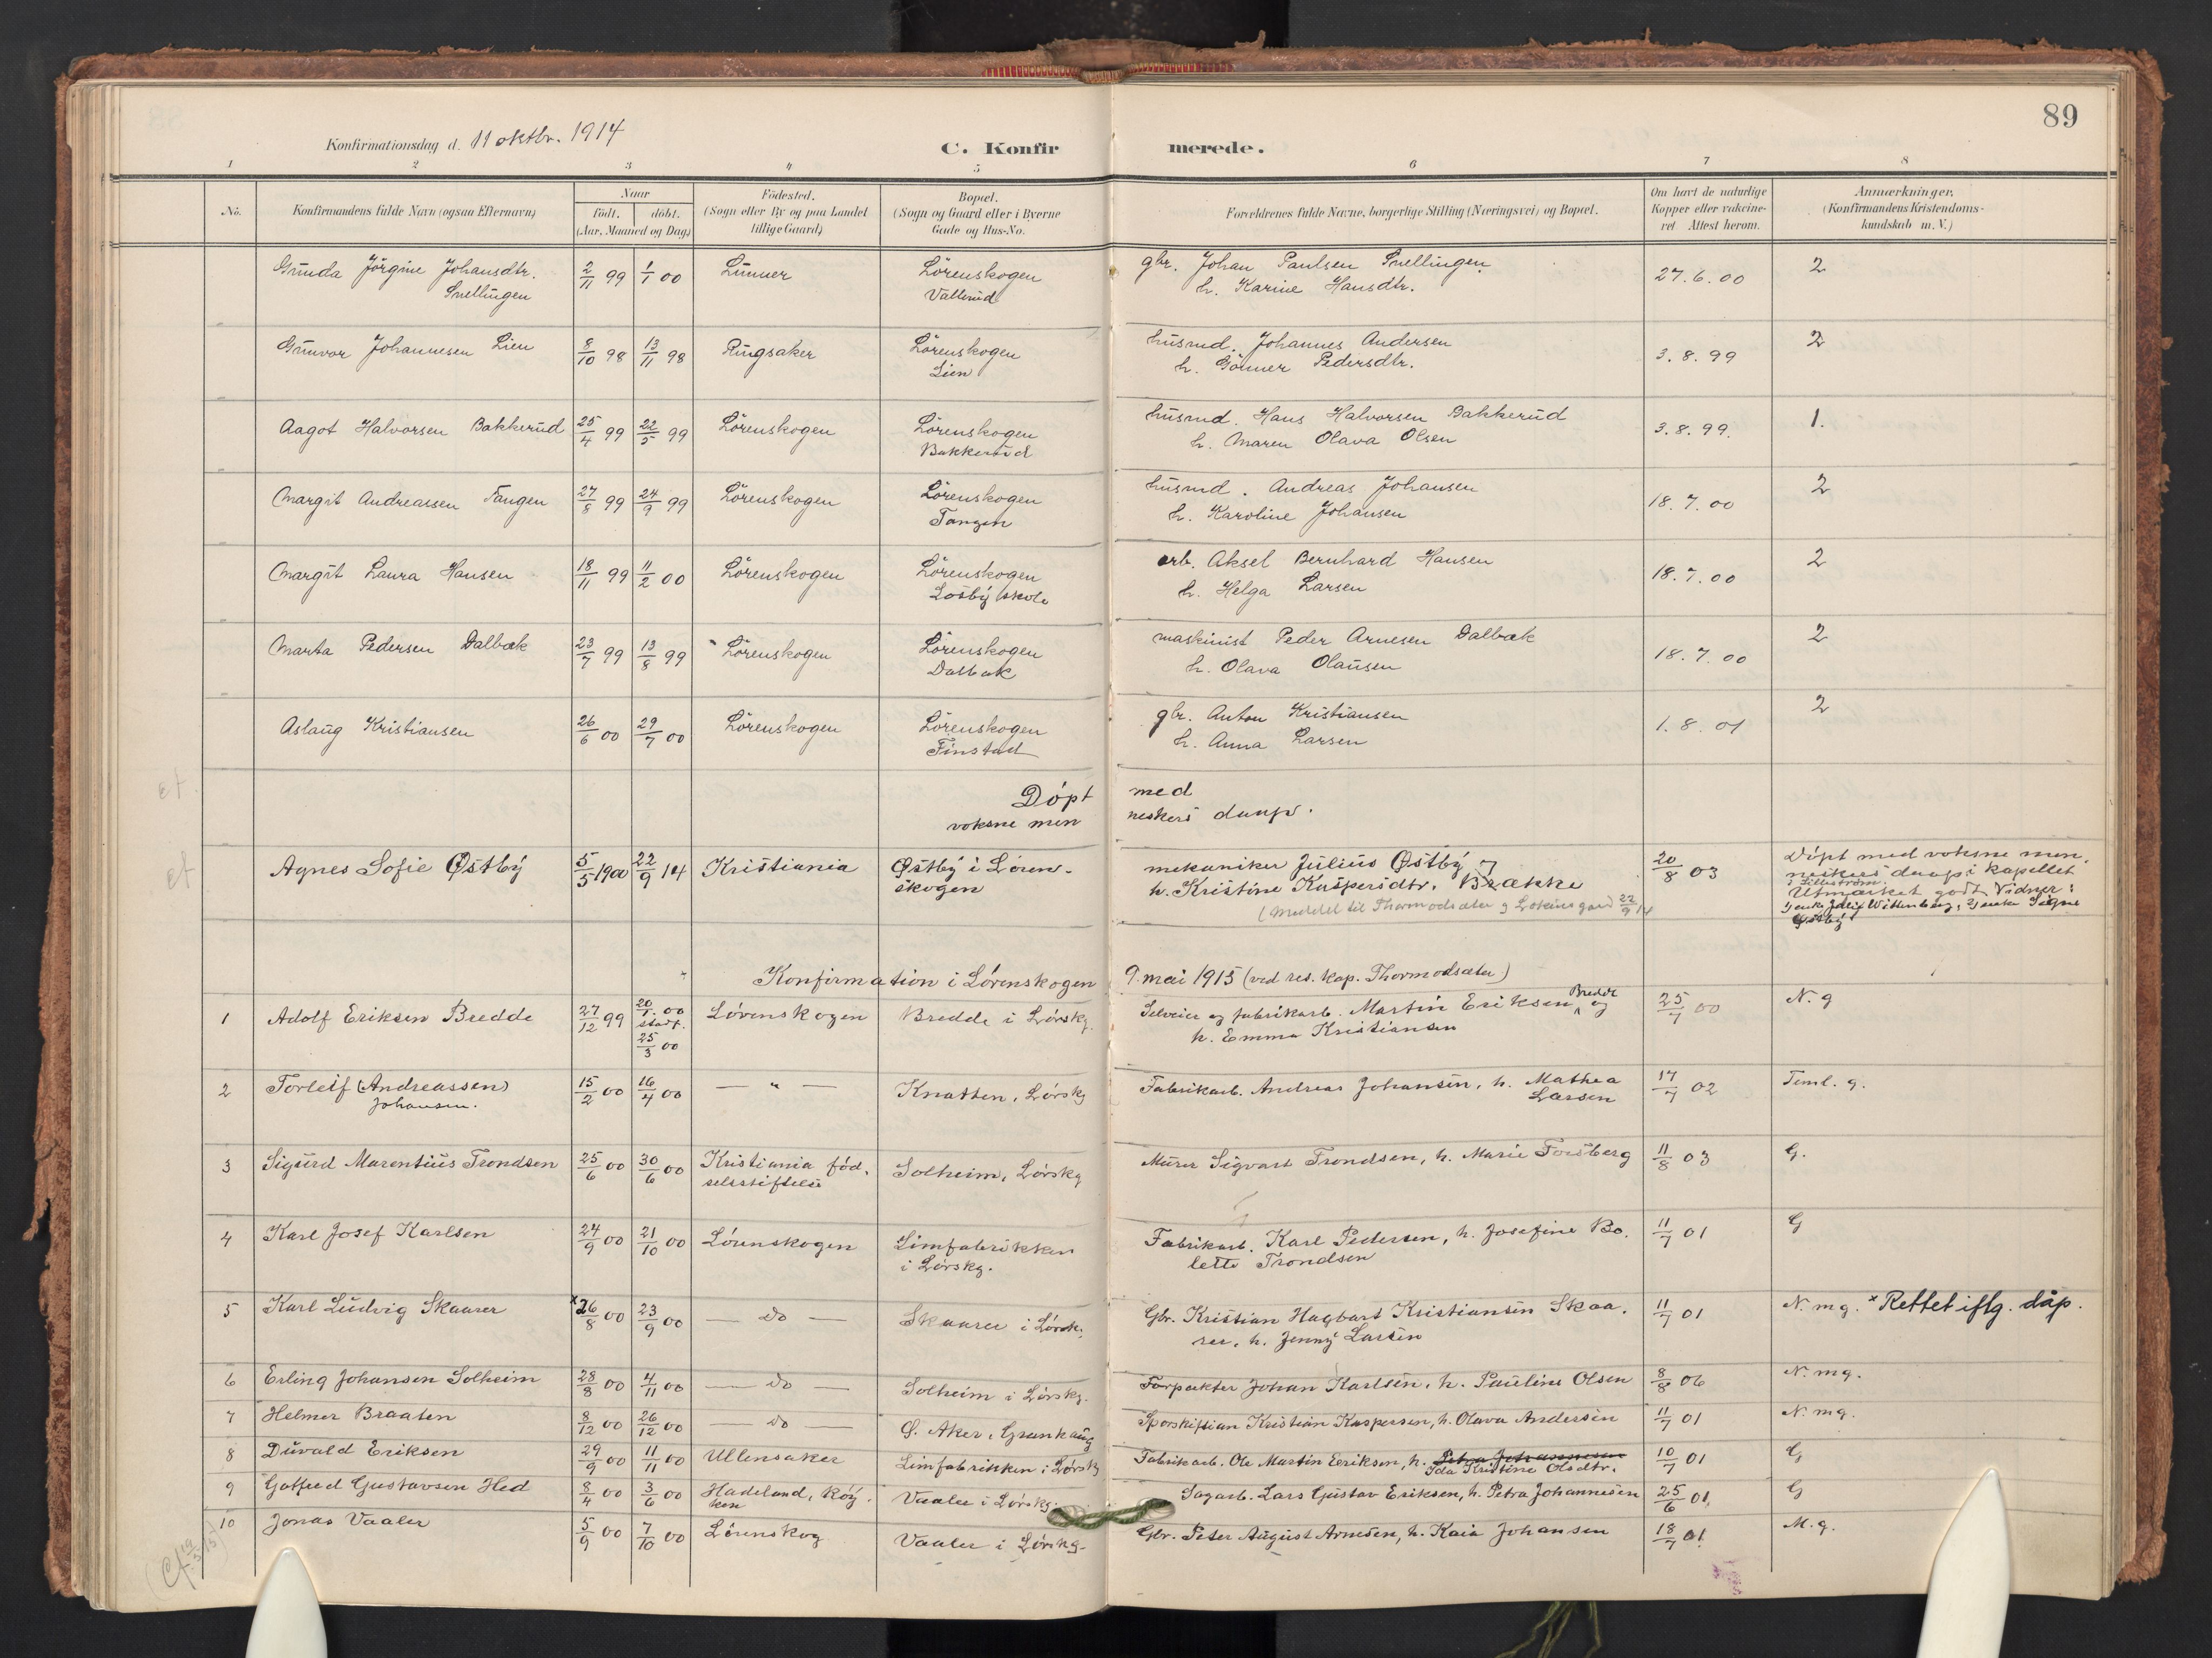 89
Konfirmationsdag d. 11 oktbr. 1914
C. Konfirmerede.
1 2 3 4 5 6 7 8
No. Konfirmandens fulde Navn (ogsaa Efternavn)
Naar födt. döbt. (Aar, Maaned og Dag)
Födested. (Sogn eller By og paa Landet tillige Gaard)
Bopæl. (Sogn og Gaard eller i Byerne Gade og Hus-No.
Forældrenes fulde Navne, borgerlige Stilling (Næringsvei) og Bopæl.
Om havt de naturlige Kopper eller vakcineret Attest herom.
Anmærkninger. (Konfirmandens Kristendomskundskab m. V.)
Gunda Jörgine Johansdtr. 2/11 99 1/1 00 Lunner Lörenskogen gbr. Johan Paulsen Snellingen 27.6.00 2
Snellingen Vallerud h. Karine Hansdtr.
Gunvor Johannesen Lien 8/10 98 13/11 98 Ringsaker Lörenskogen husmd. Johannes Andersen 3.8.99 2
Lien h. Gönner Pedersdtr.
Aagot Halvorsen Bakkerud 25/4 99 22/5 99 Lörenskogen Lörenskogen husmd. Hans Halvorsen Bakkerud 3.8.99. 1.
Bakkerud h. Maren Olava Olsen
Margit Andreassen Tangen 27/8 99 24/9 99 Lörenskogen Lörenskogen husmd. Andreas Johansen 18.7.00 2
Tangen h. Karoline Johansen
Margit Laura Hansen 18/11 99 11/2 00 Lörenskogen Lörenskogen arb. Aksel Bernhard Hansen 18.7.00 2
Losby skole h. Helga Larsen
Marta Pedersen Dalbæk 23/7 99 13/8 99 Lörenskogen Lörenskogen maskinist Peder Arnesen Dalbæk 18.7.00 2
Dalbæk h. Olava Olausen
Aslaug Kristiansen 26/6 00 29/7 00 Lörenskogen Lörenskogen gbr. Anton Kristiansen 1.8.01 2
Finstad h. Anna Larsen
Döpt med
voksne menneskers daap.
Agnes Sofie Østby 5/5 1900 22/9 14 Kristiania Østby i Lörenskogen mekaniker Julius Østby 20/8 03 Döpt med voksne menneskers daap i kapellet
h. Kristine Kaspersdtr. Brække i Lilleström.
Utmærket godt Vidner:
Østby
Konfirmation i Lörenskogen 9. mai 1915 (ved res. kap. Thormodsæter)
1 Adolf Eriksen Bredde 27/12 99 20/1. 00 stadf. 25/3 00 Lörenskogen Bredde i Lörskg. Selveier og fabrikarb. Martin Eriksen Bredde og 25/7 00 N. g
h. Emma Kristiansen
2 Torleif (Andreassen) 15/2 00 16/4 00 — " — Knatten, Lörskg Fabrikarb. Andreas Johansen, h. Mathea 17/7 02 Teml. g.
Johansen. Larsen
3 Sigurd Marentius Trondsen 25/6 00 30/6 00 Kristiania födselsstiftelse Solheim, Lörskg Murer Sigvart Trondsen, h. Marie Forsberg 11/8 03 G.
4 Karl Josef Karlsen 24/9 00 21/10 00 Lörenskogen Limfabrikken Fabrikarb. Karl Pedersen, h. Josefine Bo- 11/7 01 G
i Lörskg. lette Trondsen
5 Karl Ludvig Skaarer x26/8 00 23/9 00 — do — Skaarer i Lörsk. Gbr. Kristian Hagbart Kristiansen Skaa- 11/7 01 N. mg. x Rettet iflg. dåp.
rer, h. Jenny Larsen
6 Erling Johansen Solheim 28/8 00 4/11 00 — do — Solheim i Lörskg. Forpakter Johan Karlsen, h. Pauline Olsen 8/8 06 N. mg.
7 Helmer Braaten 8/12 00 26/12 00 — do — Ø. Aker, Grønhaug Kristian Kaspersen, h. Olava Andersen 11/7 01 N. mg.
8 Duvald Eriksen 29/9 00 11/11 00 Ullensaker Limfabrikken i Lörskg Fabrikarb. Ole Martin Eeriksen, h. Petra Johannesen 10/7 01 G
Ida Kristine Olsdtr.
9 Gotfred Gustavsen Hed 8/4 00 3/6 00 Hadeland, Röy- Vaaler i Lörskg. Sagarb. Lars Gustav Eriksen, h. Petra Johannesen 25/6 01. G
ken
10 Jonas Vaaler 5/9 00 7/10 00 Lörenskog Vaaler i Lörskg. Gbr. Peter August Arnesen, h. Kaia Johansen 18/7 01. M.g.